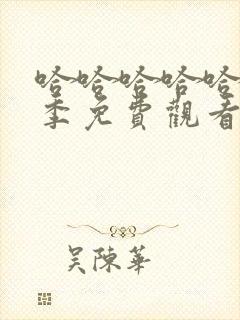 哈哈哈哈哈
季免費觀看
吴陳華